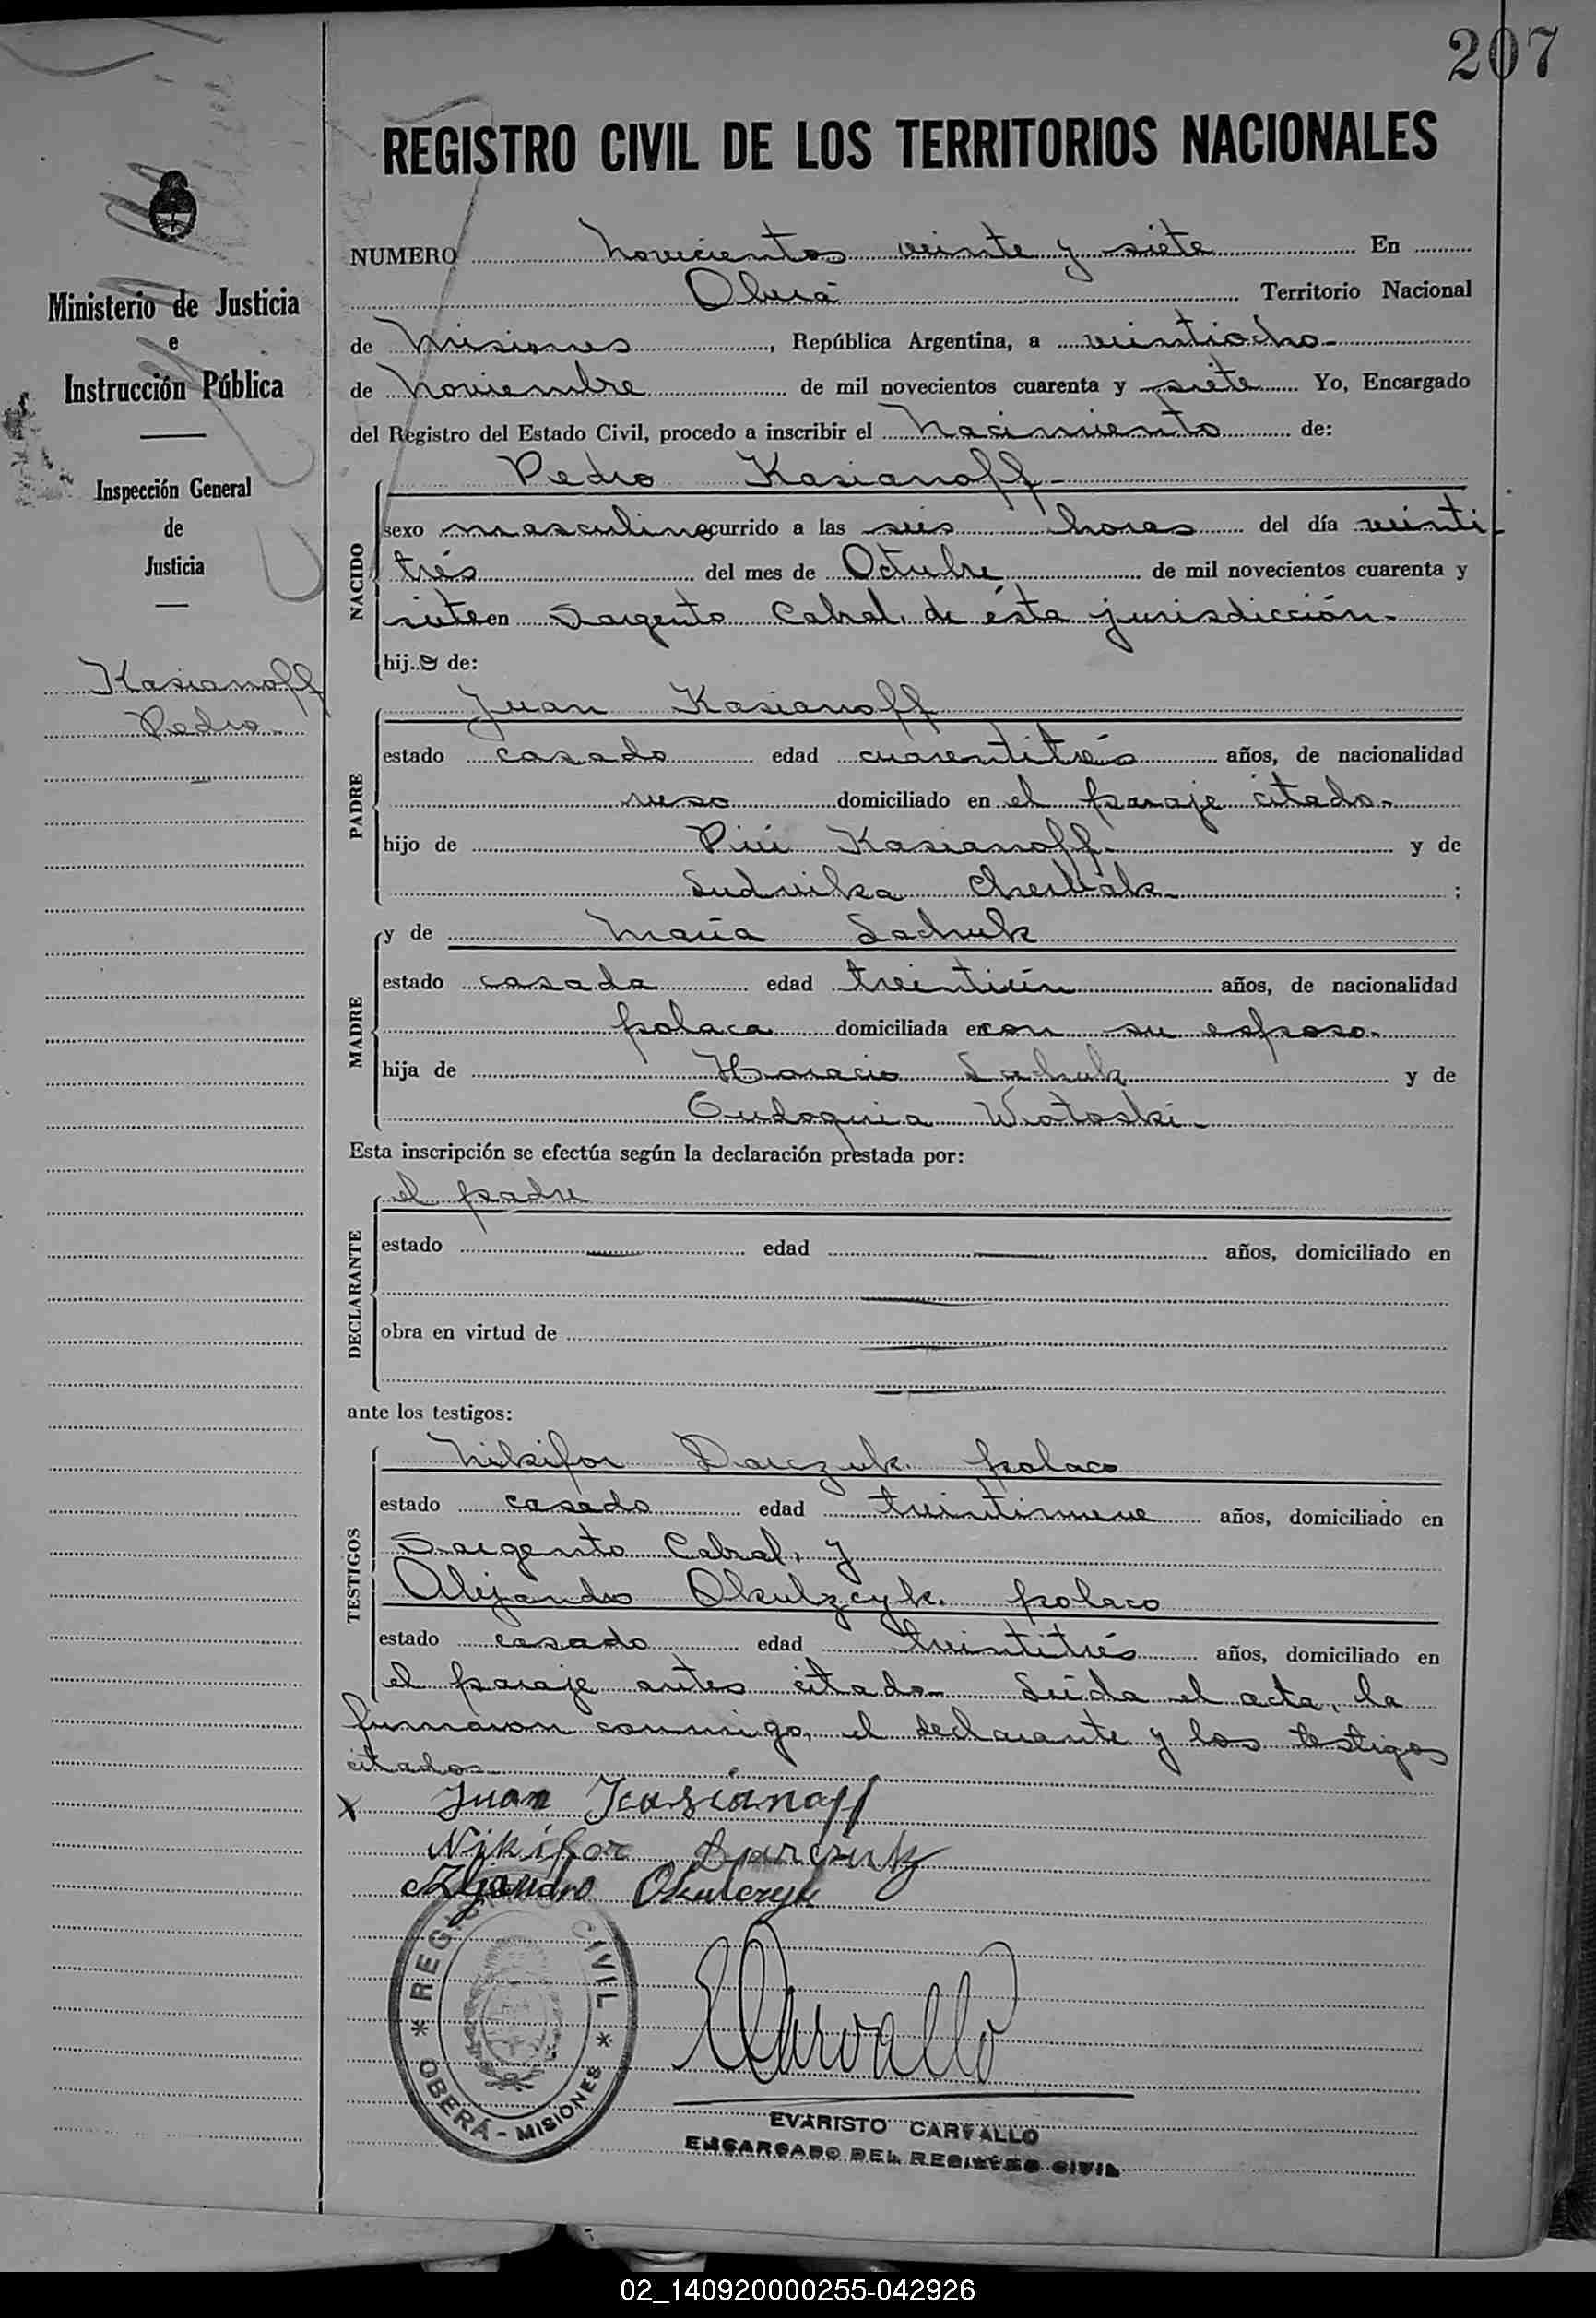 207
REGISTRO CIVIL DE LOS TERRITORIOS NACIONALES
Ministerio de Justicia
e
Instrucción Pública
Inspección General
de
Justicia
Kasianoff
Pedro
NUMERO novecientos veinte y siete En
Oberá Territorio Nacional
de Misiones, República Argentina, a veintiocho
de Noviembre de mil novecientos cuarenta y siete Yo, Encargado
del Registro del Estado Civil, procedo a inscribir el Nacimiento de:
NACIDO
Pedro Kasianoff
sexo masculino ocurrido a las seis horas del día veinti
trés del mes de Octubre de mil novecientos cuarenta y
siete en Sargento Cabral, de ésta jurisdicción.
hijo de:
PADRE
Juan Kasianoff
estado casado edad cuarentitrés años, de nacionalidad
ruso domiciliado en el paraje citado.
hijo de Kasianoff y de
Ludvika ;
MADRE
y de María Sachuk
estado casada edad treintiún años, de nacionalidad
polaca domiciliada en con su esposo.
hija de Horacio Sachuk y de
Eudoquia Wotoski
Esta inscripción se efectúa según la declaración prestada por:
DECLARANTE
el padre
estado edad años, domiciliado en
obra en virtud de
ante los testigos:
TESTIGOS
Nikifor Darczuk polaco
estado casado edad treintinueve años, domiciliado en
Sargento Cabral, y
Alejandro Okulzcyk. polaco
estado casado edad treintitrés años, domiciliado en
el paraje antes citado. Leída el acta, la
firmaron conmigo, el declarante y los testigos
citados
x Juan Kasianoff
Nikifor Darczuk
Alejandro Okulczyk
REGISTRO CIVIL
* OBERÁ - MISIONES *
ECarvallo
EVARISTO CARVALLO
ENCARGADO DEL REGISTRO CIVIL
02_140920000255-042926